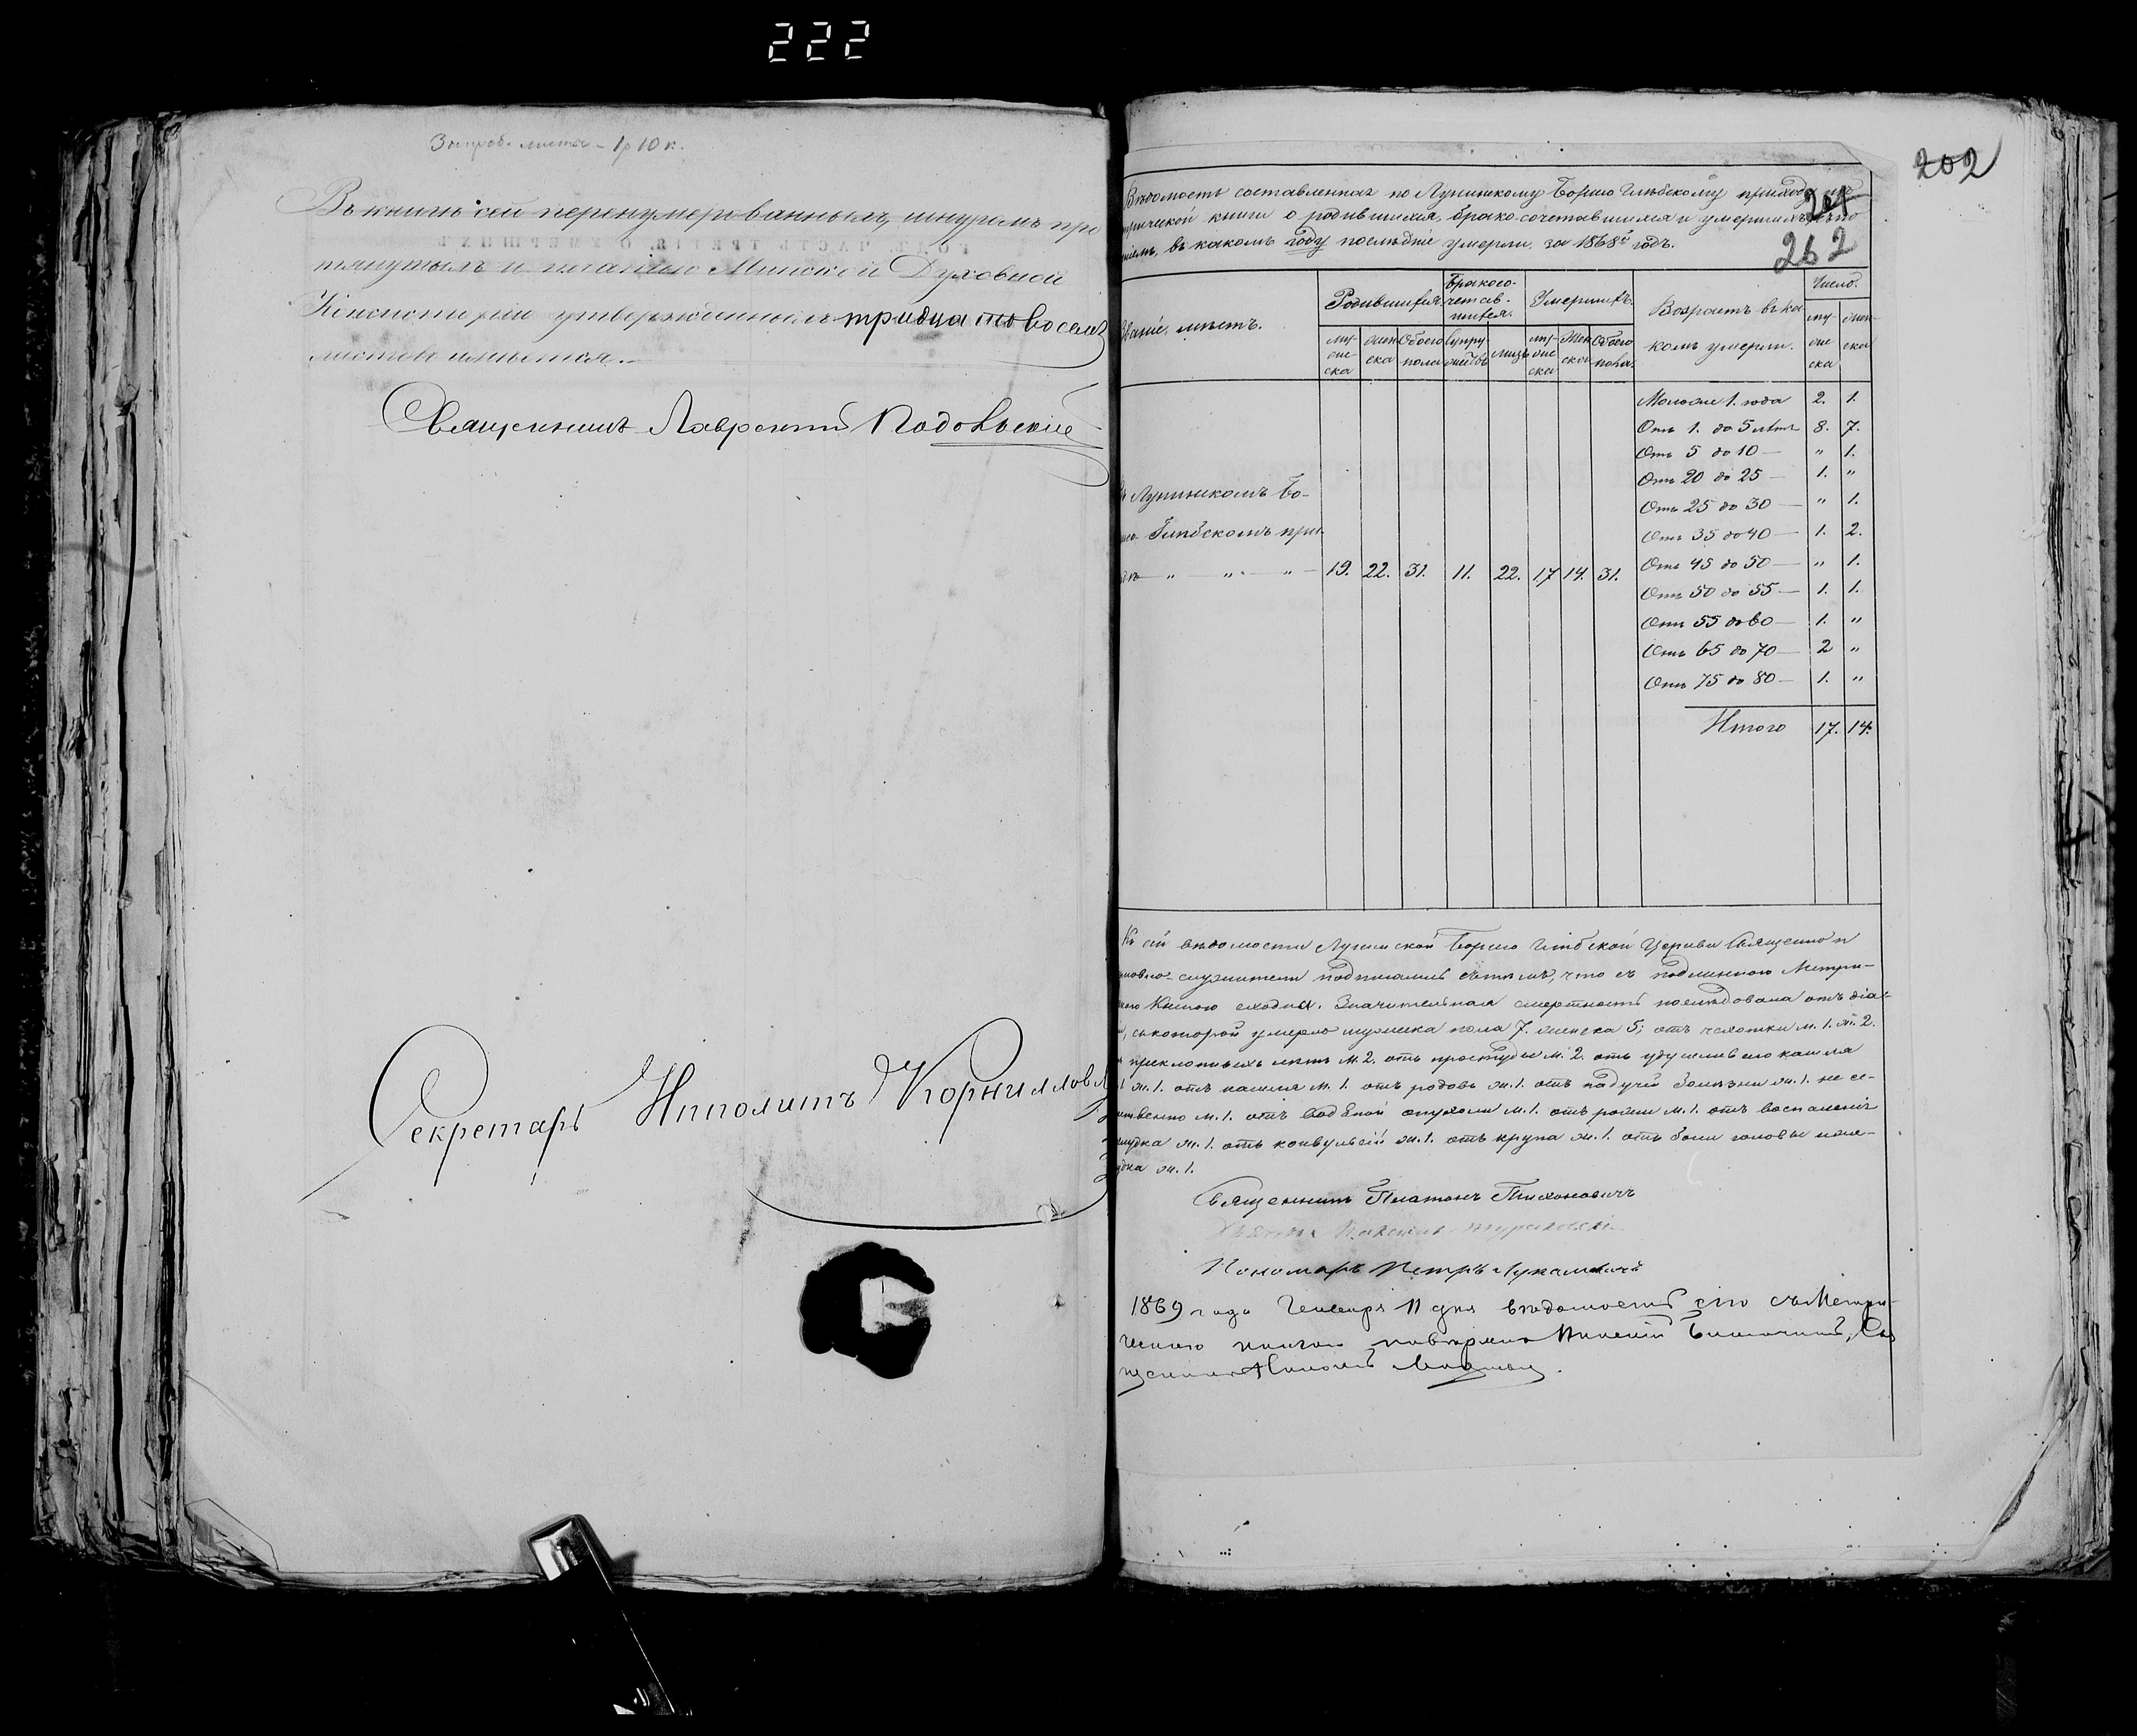 222
За проб. листы - 1 р 10 к.
Въ книгѣ сей перенумерованныхъ, шнуромъ про
тянутыхъ и печатью Минской Духовной
Консисторіи утвержденныхъ тридцать восемь
листовъ имѣется.
Священникъ Лаврентій Подольскій
Секретарь Ипполитъ Корнилов
202
262
Вѣдомость составленная по Лунинскому Борисо Глѣбскому приходу изъ
трической книги о родившихся, брако-сочетавшихся и умершихъ
въ какомъ году послѣдніе умерли, за 1868й годъ.
Званіе мѣстъ.
Родившихся
Бракосо-
четав-
шихся.
Умершихъ
Возрастъ въ ка-
комъ умерли.
Число.
му-
жес-
ска
жен-
ска
Обоего
пола
Супру-
жествъ
лицъ
му-
жес-
ска
Жен-
ска
Обоего
пола.
му-
жес-
ска
жен-
ска
Лунинскомъ Бо-
Глѣбскомъ при-
" " " 19. 22. 31. 11. 22. 17 14. 31.
Моложе 1. года 2. 1.
Отъ 1. до 5 лѣтъ 8. 7.
Отъ 5 до 10 — " 1.
Отъ 20 до 25 — 1. "
Отъ 25 до 30 — " 1.
Отъ 35 до 40 — 1. 2.
Отъ 45 до 50 — " 1.
Отъ 50 до 55 — 1. 1.
Отъ 55 до 60 — 1. "
Отъ 65 до 70 — 2 "
Отъ 75 до 80 — 1. "
Итого 17. 14.
Къ сій вѣдомости Лунинской Борисо Глѣбской Церкви Священно и
служители подписались въ томъ, что съ подлинною Метри-
Книгою сходна. Значительная смертность послѣдовала отъ діа-
съ которой умерло мужеска пола 7. женска 5; отъ чахотки м. 1. ж. 2.
преклонныхъ лѣтъ м. 2. отъ простуды м. 2. отъ удушливаго кашля
ж. 1. отъ кашля м. 1. отъ родовъ ж. 1. отъ падучей болѣзни ж. 1. не е-
ственно м. 1. отъ водяной опухоли м. 1. отъ рожи м. 1. отъ воспаленія
желудка ж. 1. отъ конвульсій ж. 1. отъ крупа ж. 1. отъ боли головы
ж. 1.
Священникъ Платонъ Тихоновичъ
Пономарь Петръ Лукашевичъ
1869 года Генваря 11 дня вѣдомость сію съ Метри-
ческою книгою повѣрялъ Благочинный, Свя
щенникъ